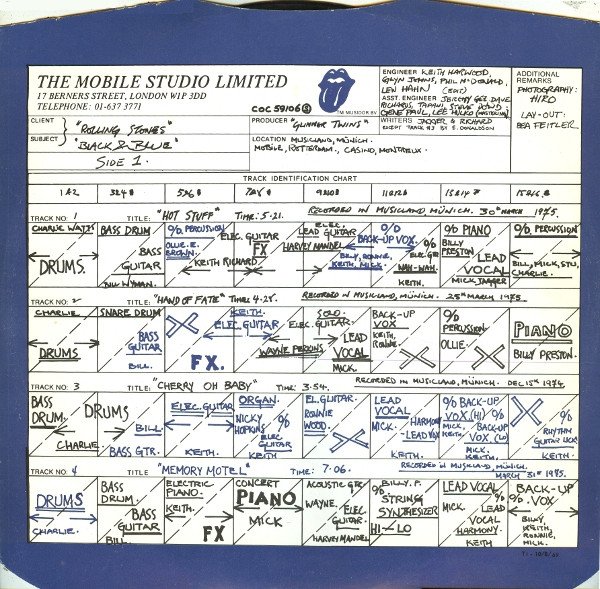 THE MOBILE STUDIO LIMITED
17 BERNERS STREET, LONDON W1P 3DD
TELEPHONE: 01-637 3771
COC 59106
ENGINEER KEITH HARWOOD,
GLYN JOHNS, PHIL McDONALD,
LEW HAHN
ASST. ENGINEER JEREMY GEE, DAVE
RICHARDS, TAPANI, STEVE DOWD,
GENE PAUL, LEE HULKO
WRITERS JAGGER & RICHARD
EXCEPT TRACK No 3 BY E. DONALDSON
ADDITIONAL
REMARKS
PHOTOGRAPHY:
HIRO
LAY-OUT:
BEA FEITLER
CLIENT "ROLLING STONES"
PRODUCER "GLIMMER TWINS"
SUBJECT "BLACK & BLUE"
SIDE 1.
LOCATION MUSICLAND, MÜNICH.
MOBILE, ROTTERDAM, CASINO, MONTREUX
TRACK IDENTIFICATION CHART
1&2 3&4 5&6 7&8 9&10 11&12 13&14 15&16
TRACK NO: 1 TITLE: "HOT STUFF" TIME: 5·21. RECORDED IN MUSICLAND MÜNICH. 30th MARCH 1975.
CHARLIE WATTS
DRUMS.
BASS DRUM
BASS
GUITAR
BILL WYMAN.
% PERCUSSION
OLLIE. E.
BROWN.
KEITH RICHARD
ELEC. GUITAR
FX
ELEC.
LEAD GUITAR
HARVEY MANDEL
O/D
BACK-UP VOX.
BILLY, RONNIE,
KEITH, MICK.
%
ELEC GTR
WAH-WAH.
KEITH.
% PIANO
BILLY
PRESTON
LEAD
VOCAL
MICK JAGGER
% PERCUSSION
BILL, MICK, STU,
CHARLIE.
TRACK NO: 2 TITLE: "HAND OF FATE" TIME: 4·28. RECORDED IN MUSICLAND, MÜNICH. 25th MARCH 1975.
CHARLIE
DRUMS
SNARE DRUM
BASS
GUITAR
BILL.
FX.
KEITH.
ELEC GUITAR
WAYNE PERKINS
SOLO.
ELEC GUITAR.
LEAD
VOCAL
MICK.
BACK-UP
VOX
KEITH,
RONNIE.
%
PERCUSSION
OLLIE.
PIANO
BILLY PRESTON.
TRACK NO: 3 TITLE: "CHERRY OH BABY" TIME: 3·54. RECORDED IN MUSICLAND, MÜNICH. DEC 15th 1974.
BASS
DRUM.
DRUMS
CHARLIE.
BILL.
BASS GTR.
ELEC. GUITAR
KEITH.
ORGAN.
NICKY
HOPKINS
%
ELEC
GUITAR
KEITH
EL. GUITAR.
RONNIE
WOOD.
LEAD
VOCAL
MICK.
HARMONY
-LEAD VOX
KEITH.
% BACK-UP
VOX.(HI)
MICK.
KEITH.
% BACK-UP
VOX.(LO)
MICK.
KEITH
%
RHYTHM
GUITAR LICK
KEITH
TRACK NO: 4 TITLE: "MEMORY MOTEL" TIME: 7·06. RECORDED IN MUSICLAND, MÜNICH.
MARCH 31st 1975.
DRUMS
CHARLIE.
BASS
DRUM.
BASS
GUITAR
BILL
ELECTRIC
PIANO.
KEITH.
FX
CONCERT
PIANO
MICK
ACOUSTIC GTR
WAYNE.
ELEC.
GUITAR.
HARVEY MANDEL
BILLY. P.
%
STRING
SYNTHESIZER
HI-LO
LEAD VOCAL
MICK.
LEAD
VOCAL
HARMONY.
KEITH
BACK-UP
% VOX.
BILLY,
KEITH,
RONNIE,
MICK.